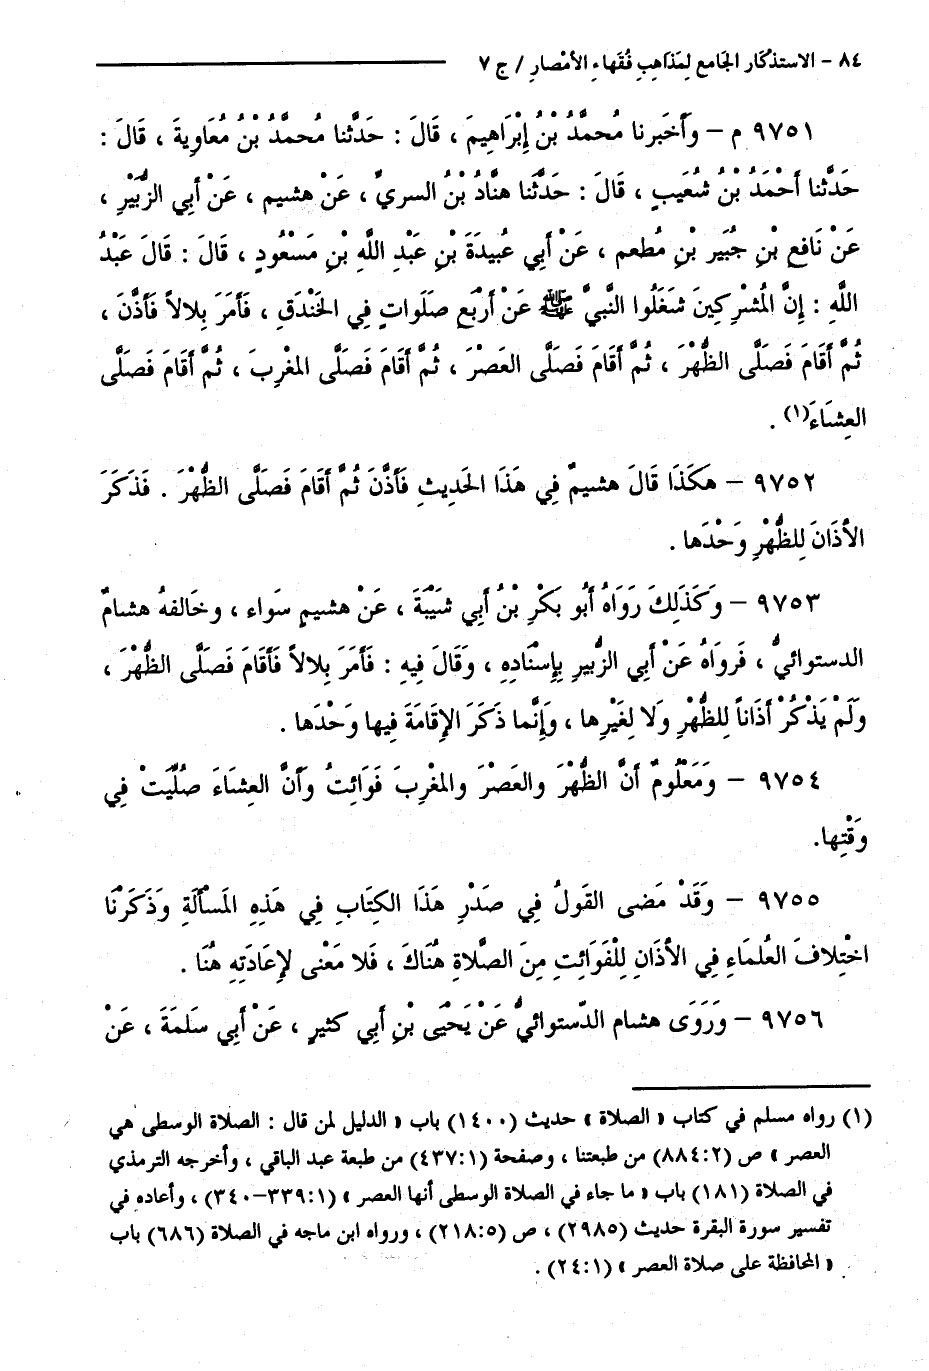 ٨٤ – الاستذكار الجامع لمَذاهِبِ فُقَهاءِ الأمْصارِ / ج ٧
٩٧٥١ م – وأخبرنا مُحمَّدُ بْنُ إِبْرَاهِيمَ ، قَالَ : حَدَّثنا مُحمدُ بْنُ مُعَاوِيةَ ، قَالَ :
حَدَّثنا أحْمَدُ بْنُ شُعَيبٍ ، قَالَ : حَدَّثَنا هنَّادُ بْنُ السريِّ ، عَنْ هشيم ، عَنْ أبي الزُّبَيْرِ ،
عَنْ نَافعِ بْنِ جُبَيرِ بْنِ مُطعم ، عَنْ أبي عُبيدَةَ بْنِ عَبْدِ اللَّهِ بْنِ مَسْعُودٍ ، قَالَ : قَالَ عَبْدُ
اللَّهِ : إِنَّ الْمُشْرِكِينَ شَغَلُوا النَّبيَّ ﷺ عَنْ أرْبَعِ صلَوَاتٍ فِي الخَنْدَقِ ، فَأمَرَ بِلالاً فَأذَّنَ ،
ثُمَّ أقَامَ فَصَلَّى الظُّهْرَ ، ثُمَّ أقَامَ فَصَلَّى العَصْرَ ، ثُمَّ أقَامَ فَصَلَّى المَغْرِبَ ، ثُمَّ أقَامَ فَصَلَّى
العِشَاءَ(١) .
٩٧٥٢ – هكَذَا قَالَ هشيمٌ فِي هَذَا الحَديثِ فَأذَّنَ ثُمَّ أقَامَ فَصَلَّى الظُّهْرَ . فَذَكَرَ
الأذَانَ لِلظُّهْرِ وَحْدَها .
٩٧٥٣ – وَكَذَلِكَ رَوَاهُ أبُو بَكْرِ بْنُ أبِي شَيْبَةَ ، عَنْ هشيمٍ سَواء ، وخَالفهُ هشامٌ
الدستوائيُّ ، فَروَاهُ عَنْ أبِي الزُّبيرِ بِإسْنَادِهِ ، وَقَالَ فِيهِ : فَأمَرَ بِلالاً فَأقَامَ فَصَلَّى الظُّهْرَ ،
وَلَمْ يَذْكُرْ أذَاناً لِلظُّهْرِ وَلا لِغَيْرِها ، وَإِنَّما ذَكَرَ الإِقَامَةَ فِيها وَحْدَها .
٩٧٥٤ – وَمَعْلُومٌ أنَّ الظُّهْرَ والعَصْرَ والمغْرِبَ فَوَائِتُ وَأنَّ العِشَاءَ صُلِّيَتْ فِي
وَقْتِها.
٩٧٥٥ – وَقَدْ مَضى القَولُ فِي صَدْرِ هَذَا الكِتَابِ فِي هَذِهِ المَسْألَةِ وَذَكَرْنَا
اخْتِلافَ العُلَماءِ فِي الأذَانِ لِلْفَوَائِتِ مِنَ الصَّلاةِ هُنَاكَ ، فَلا مَعْنى لإِعَادَتِهِ هُنَا .
٩٧٥٦ – وَرَوَى هشام الدّستوائيُّ عَنْ يَحْيَى بْنِ أبِي كثيرٍ ، عَنْ أبِي سَلَمَةَ ، عَنْ
(١) رواه مسلم في كتاب « الصلاة » حديث (١٤٠٠) باب « الدليل لمن قال : الصلاة الوسطى هي
العصر » ص (٨٨٤:٢) من طبعتنا ، وصفحة (٤٣٧:١) من طبعة عبد الباقي ، وأخرجه الترمذي
في الصلاة (١٨١) باب « ما جاء في الصلاة الوسطى أنها العصر » (٣٣٩:١–٣٤٠) ، وأعاده في
تفسير سورة البقرة حديث (٢٩٨٥) ، ص (٢١٨:٥) ، ورواه ابن ماجه في الصلاة (٦٨٦) باب
« المحافظة على صلاة العصر » (٢٤:١) .